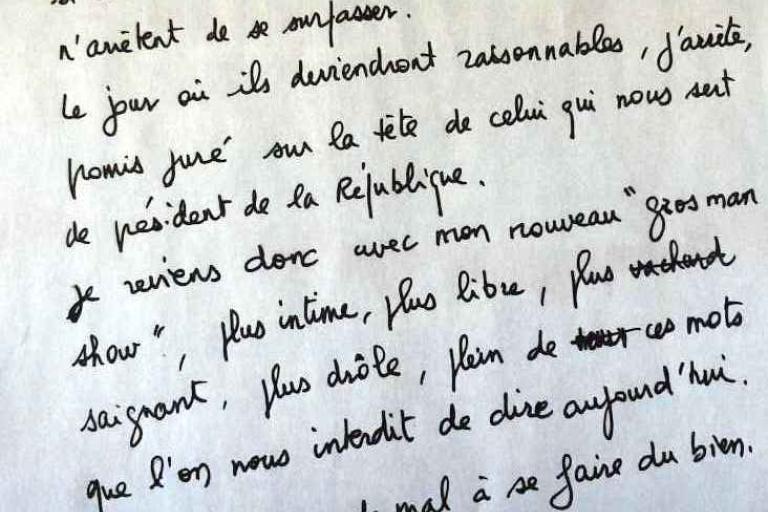 n'arrêtent de se surpasser.
Le jour où ils deviendront raisonnables, j'arrête,
promis juré sur la tête de celui qui nous sert
de président de la République.
Je reviens donc avec mon nouveau "gros man
show", plus intime, plus libre, plus vachard
saignant, plus drôle, plein de ces mots
que l'on nous interdit de dire aujourd'hui.
mal à se faire du bien.